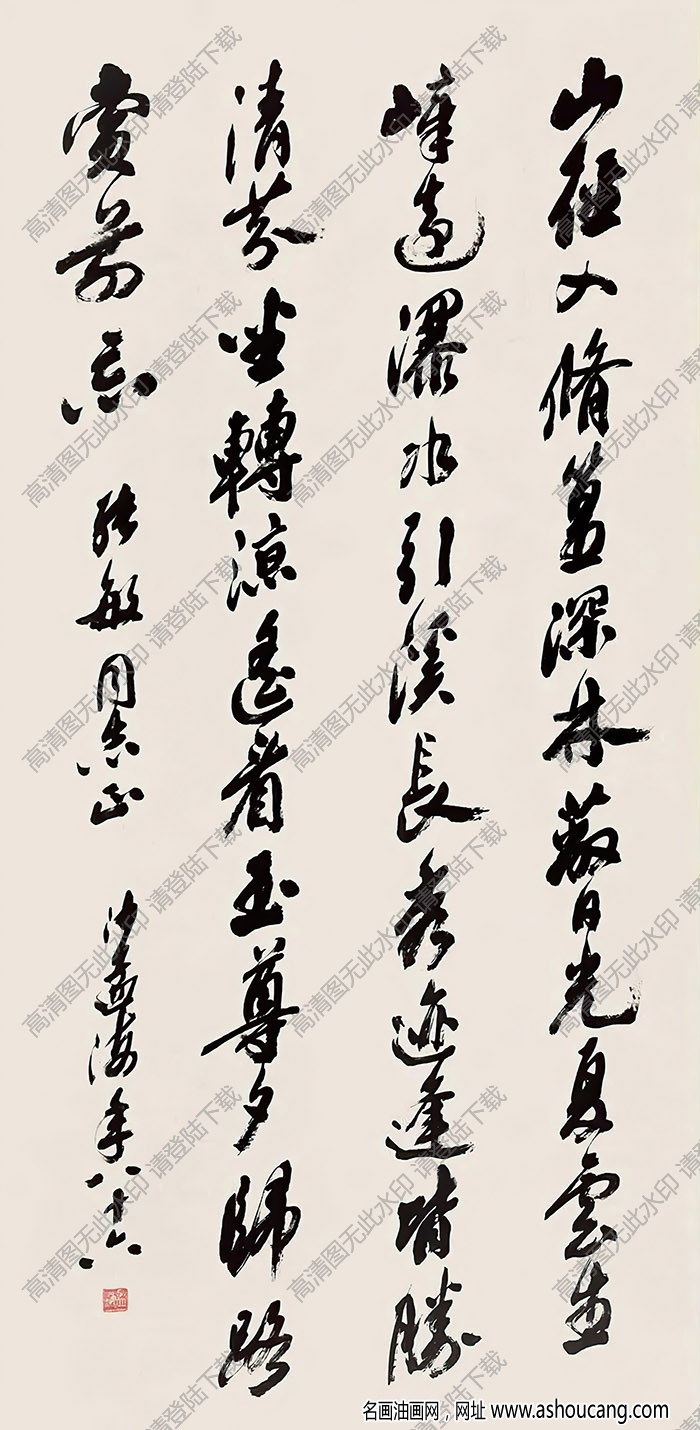 山徑入脩篁深林蔽日光夏雲生
嶂遠瀑水引溪長秀迹逢皆勝
清芬坐轉涼遙看玉尊夕歸路
賞前忘
張敏同志正
沙孟海年八十六
高清图无此水印 请登陆下载
名画油画网，网址 www.ashoucang.com